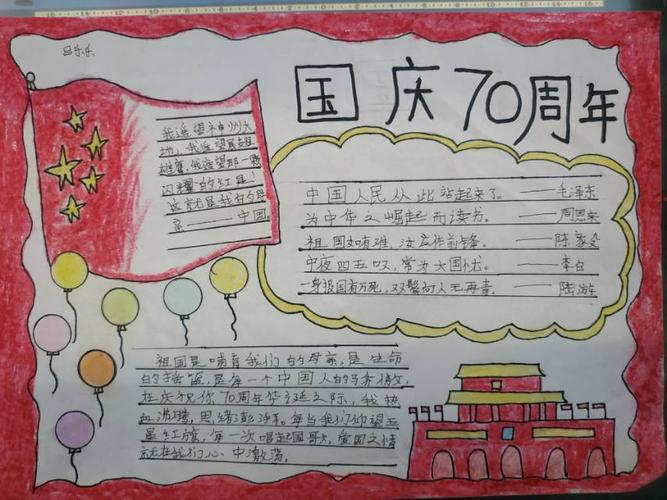 吕乐乐
国庆70周年
我遥望神州大
地，我遥望展翅
雄鹰，我遥望那一颗
闪耀的红星！
这就是我的母
亲——中国
中国人民从此站起来了。——毛泽东
为中华之崛起而读书。——周恩来
祖国如有难，汝应作前锋。——陈毅
中夜四五叹，常为大国忧。——李白
一身报国有万死，双鬓向人无再青。——陆游
祖国是哺育我们的母亲，是生命
的摇篮，是每一个中国人的骄傲，
在庆祝你70周年华诞之际，我热
血沸腾，思绪澎湃。每当我们仰望五
星红旗，每一次唱起国歌，爱国之情
就在我们心中激荡。